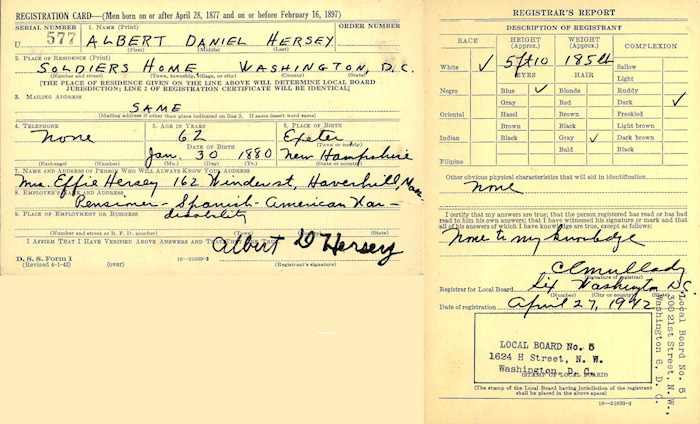 REGISTRATION CARD—(Men born on or after April 28, 1877 and on or before February 16, 1897)
SERIAL NUMBER
1. NAME (Print)
ORDER NUMBER
U 577
ALBERT DANIEL HERSEY
(First) (Middle) (Last)
2. PLACE OF RESIDENCE (Print)
SOLDIERS HOME WASHINGTON, D.C.
(Number and street) (Town, township, village, or city) (County) (State)
[THE PLACE OF RESIDENCE GIVEN ON THE LINE ABOVE WILL DETERMINE LOCAL BOARD
JURISDICTION; LINE 2 OF REGISTRATION CERTIFICATE WILL BE IDENTICAL]
3. MAILING ADDRESS
SAME
[Mailing address if other than place indicated on line 2. If same insert word same]
4. TELEPHONE
5. AGE IN YEARS
6. PLACE OF BIRTH
None
62
Exeter
DATE OF BIRTH
(Town or county)
Jan. 30 1880
New Hampshire
(Exchange) (Number) (Mo.) (Day) (Yr.) (State or country)
7. NAME AND ADDRESS OF PERSON WHO WILL ALWAYS KNOW YOUR ADDRESS
Mrs. Effie Hersey 162 Winder st, Haverhill, Mass.
8. EMPLOYER'S NAME AND ADDRESS
Pensioner - Spanish-American War -
9. PLACE OF EMPLOYMENT OR BUSINESS
disability
(Number and street or R. F. D. number) (Town) (County) (State)
I AFFIRM THAT I HAVE VERIFIED ABOVE ANSWERS AND THAT THEY ARE TRUE.
Albert D Hersey
D. S. S. Form 1
(Revised 4-1-42) (over)
16—21630-2
(Registrant's signature)
REGISTRAR'S REPORT
DESCRIPTION OF REGISTRANT
RACE
HEIGHT
(Approx.)
WEIGHT
(Approx.)
COMPLEXION
White ✓
5 ft 10
185 lb
Sallow
EYES
HAIR
Light
Negro
Blue ✓
Blonde
Ruddy
Gray
Red
Dark ✓
Oriental
Hazel
Brown
Freckled
Brown
Black
Light brown
Indian
Black
Gray ✓
Dark brown
Bald
Black
Filipino
Other obvious physical characteristics that will aid in identification
None
I certify that my answers are true; that the person registered has read or has had
read to him his own answers; that I have witnessed his signature or mark and that
all of his answers of which I have knowledge are true, except as follows:
None to my knowledge
C E Mullady
(Signature of registrar)
Registrar for Local Board Six Washington D.C.
(Number) (City or county) (State)
Date of registration April 27, 1942
LOCAL BOARD No. 5
1624 H Street, N. W.
Washington, D. C.
(STAMP OF LOCAL BOARD)
(The stamp of the Local Board having jurisdiction of the registrant
shall be placed in the above space)
16—21630-2
Local Board No. 5
300 21st Street, N.W.,
Washington 6, D. C.